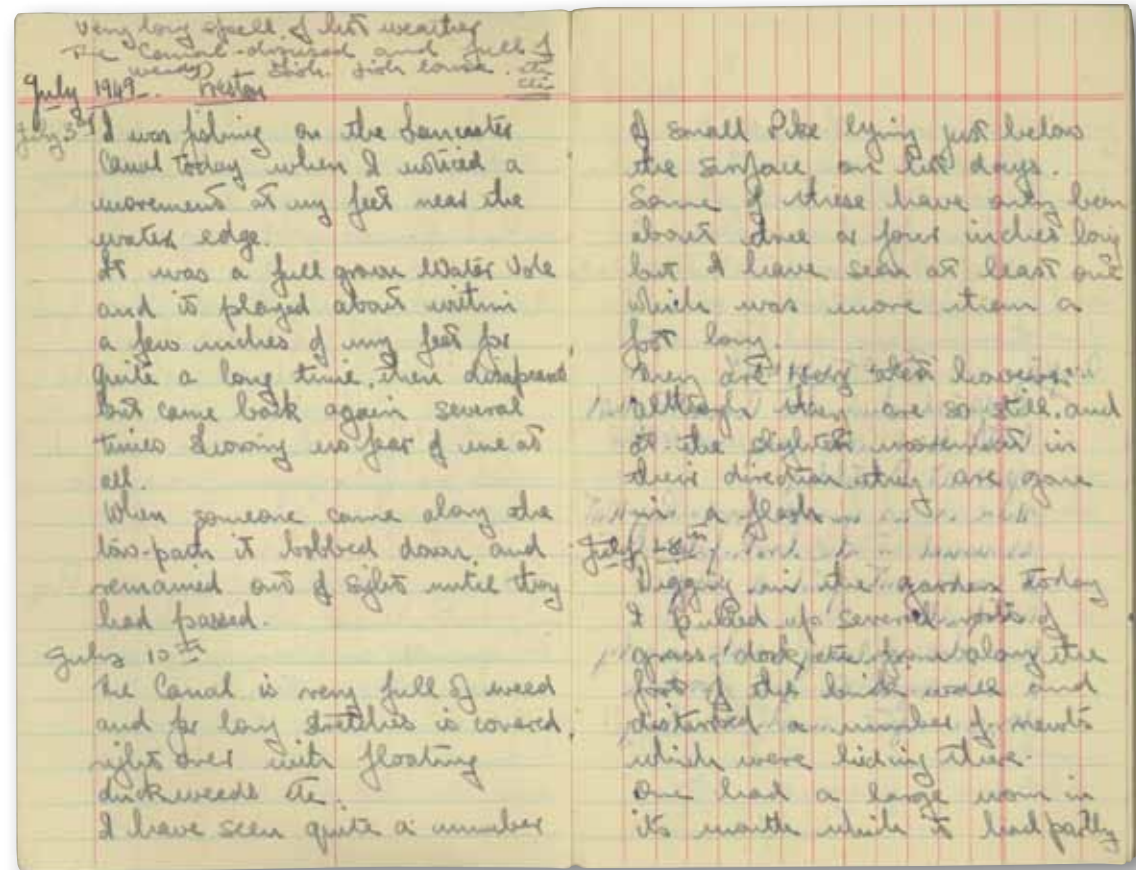 Very long spell of hot weather
The Canal and full of
weeds fish. fish
July 1949. Preston
July 3rd I was fishing on the Lancaster
Canal today when I noticed a
movement at my feet near the
water edge.
It was a full grown Water Vole
and it played about within
a few inches of my feet for
quite a long time, then disapeared
but came back again several
times showing no fear of me at
all.
When someone came along the
tow-path it bobbed down and
remained out of sight until they
had passed.
July 10th
The Canal is very full of weed
and for long stretches is covered
right over with floating
duckweeds etc.
I have seen quite a number
of small Pike lying just below
the surface on hot days.
Some of these have only been
about three or four inches long
but I have seen at least one
which was more than a
foot long.
They are very however
although they are so still, and
at the slightest movement in
their direction they are gone
in a flash.
July 28th
Digging in the garden today
I pulled up several roots of
grass, dock, etc from along the
foot of the brick wall and
disturbed a number of newts
which were hiding there.
One had a large worm in
its mouth which it had partly